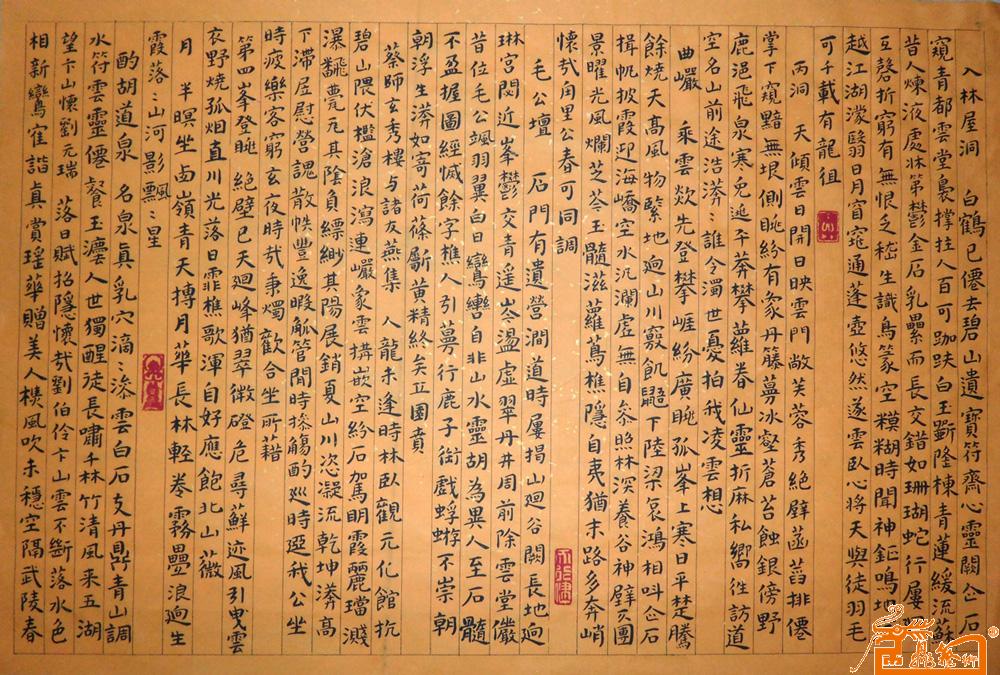 入林屋洞 白鶴已僊去碧山遺寶符齋心靈闕公石
窺青都雲堂裊撑拄人百可跏趺白玉斲隆棟青蓮緩流蘇
昔人煉液處牀第鬱金石乳纍而長交錯如珊瑚蛇行屢
互磬折窮有無恨乏嵇生識鳥篆空糢糊時聞神鉦鳴地
越江湖濛翳日月窅窕通蓬壺悠然遂雲臥心將天與徒羽毛
可千載有龍徂
丙洞 天傾雲日開日映雲門敞芙蓉秀絕壁菡萏排僊
掌下窺黯無垠側眺紛有象丹藤蔓冰壑蒼苔蝕銀傍野
鹿邈飛泉寒兔逃平莽攀蘿眷仙靈折麻私嚮徃訪道
空名山前途浩漭:誰令濁世憂拍我凌雲想
曲巖 乘雲欻先登攀崕紛廣眺孤峯上寒日平楚騰
餘燒天高風物緊地迥山川竅飢鼯下陸梁哀鴻相叫公石
揖帆披霞迎海嶠空水沉瀾虛無自參照林深養谷神壁仄團
景曜光風爛芝苓玉髓滋蘿蔦樵隱自夷猶末路多奔峭
懷哉甪里公春可同調
毛公壇 石門有遺營澗道時屢揭山廻谷闕長地迥
琳宮閟近峯鬱交青遥岺盪虛翠丹井周前除雲堂儼
昔位毛公颯羽翼白鸞轡自非山水靈胡為異人至石髓
不盈握圖經慽餘字樵人引蔓行鹿子銜戲蜉蝣不崇朝
朝浮生漭如寄荷蓧斸黄精終矣丘園賁
蔡師玄秀樓与諸友燕集 人龍未逢時林臥觀元化館抗
碧山隈伏檻滄浪瀉連巖象雲構嵌空紛石駕明霞麗璫濺
瀑翻甍瓦其陰負縹緲其陽展銷夏山川恣凝流乾坤漭高
下滯居慰營謥散帙豐逸暇觚管閒時捺觴酌巡時迓我公坐
時疲樂客窮玄夜時哉秉燭歡合坐所藉
第四峯登眺 絕壁已天廻峰猶翠微磴危尋蘚迹風引曳雲
衣野燒孤烟直川光落日霏樵歌渾自好應飽北山薇
月 半暝坐𠧧嶺青天摶月華長林輕卷霧疊浪迥生
霞落:山河影飄:星
酌胡道泉 名泉真乳穴滴:滲雲白石支丹鼎青山調
水符雲靈僊餐玉瀍人世獨醒徒長嘯千林竹清風来五湖
望卞山懷劉元瑞 落日賦招隱懷哉劉伯伶卞山雲不斷落水色
相新鸞寉諧真賞瑶華贈美人樵風吹未穩空隔武陵春